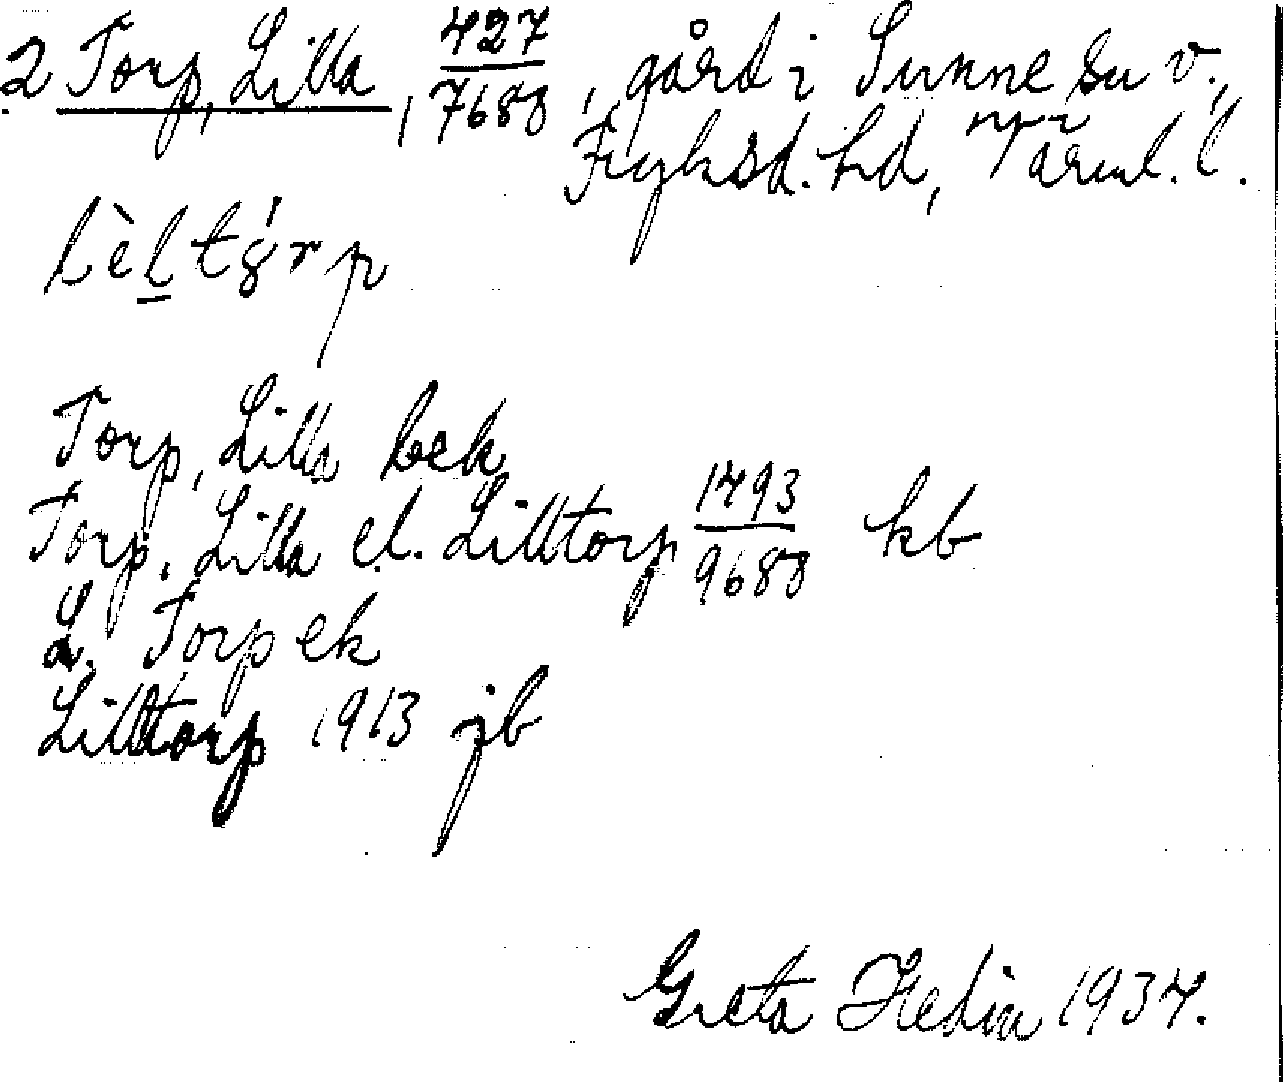 2 Torp, Lilla, 427/7688, gård i Sunne sn v.,
Fryksd. hd, Värml. l.
Torp, Lilla bek
Torp, Lilla el. Lilltorp 1493/9688 kb
L. Torp ek
Lilltorp 1913 jb
Greta Hedin 1934.